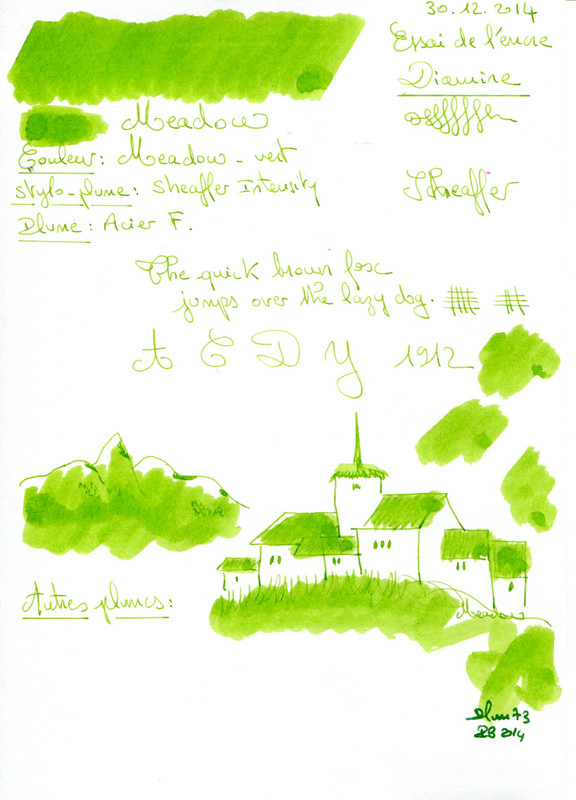 30.12.2014
Essai de l'encre
Diamine
Meadow
Couleur : Meadow - vert
Stylo-plume : Sheaffer Intensity
Plume : Acier F.
Sheaffer
The quick brown fox
jumps over the lazy dog.
A E D Y 1912
Autres plumes :
Meadow
2014